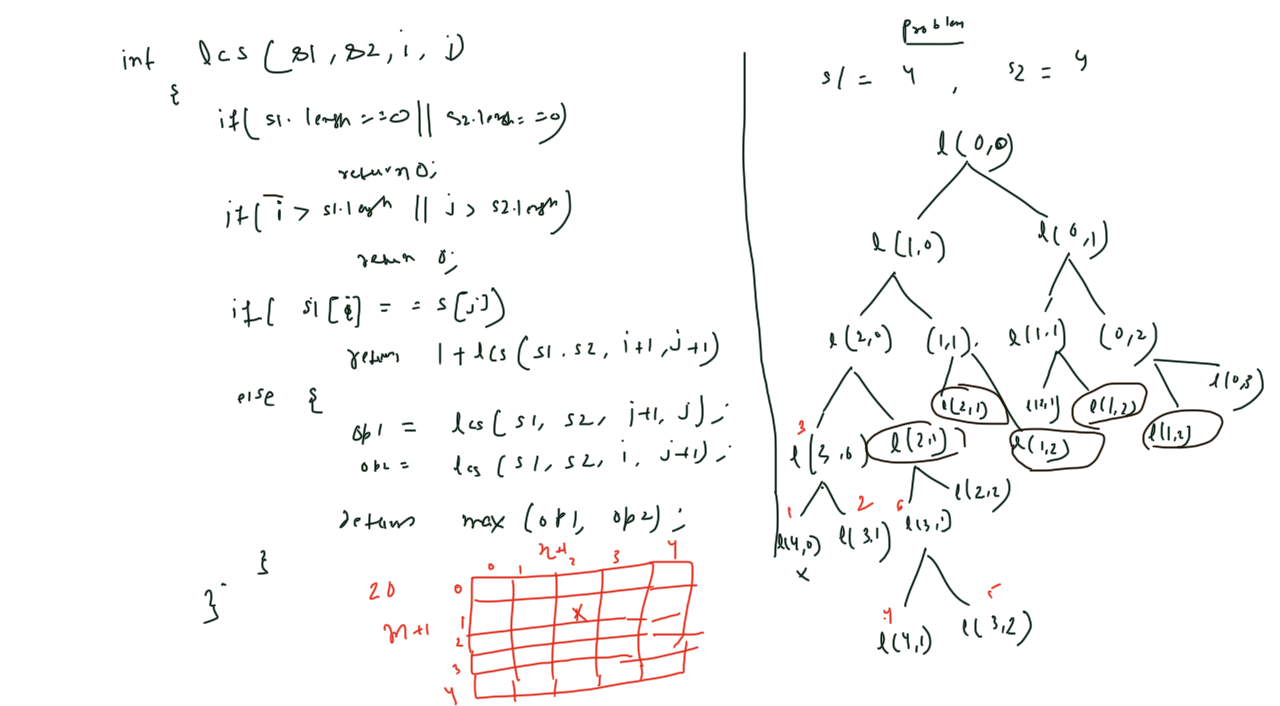 int lcs (s1, s2, i, j)
{
if( s1. length ==0 || s2.length ==0)
return 0;
if( i > s1.length || j > s2.length)
return 0;
if( s1[i] == s[j])
return 1 + lcs (s1. s2, i+1, j+1)
else {
op1 = lcs( s1, s2, j+1, j);
op2 = lcs (s1, s2, i, j+1);
return max (op1, op2);
}
}
20
n+1
m+1
0 1 2 3 4
0
1
2
3
4
x
Problem
s1 = 4 , s2 = 4
l(0,0)
l(1,0) l(0,1)
l(2,0) (1,1). l(1,1) (0,2)
l(2,1) l(2,1) l(1,2) l(0,3)
3 l(3,0) l(2,1) l(1,2) l(1,2)
l(2,2)
1 2 6
l(4,0) l(3,1) l(3,1)
x
4 5
l(4,1) l(3,2)